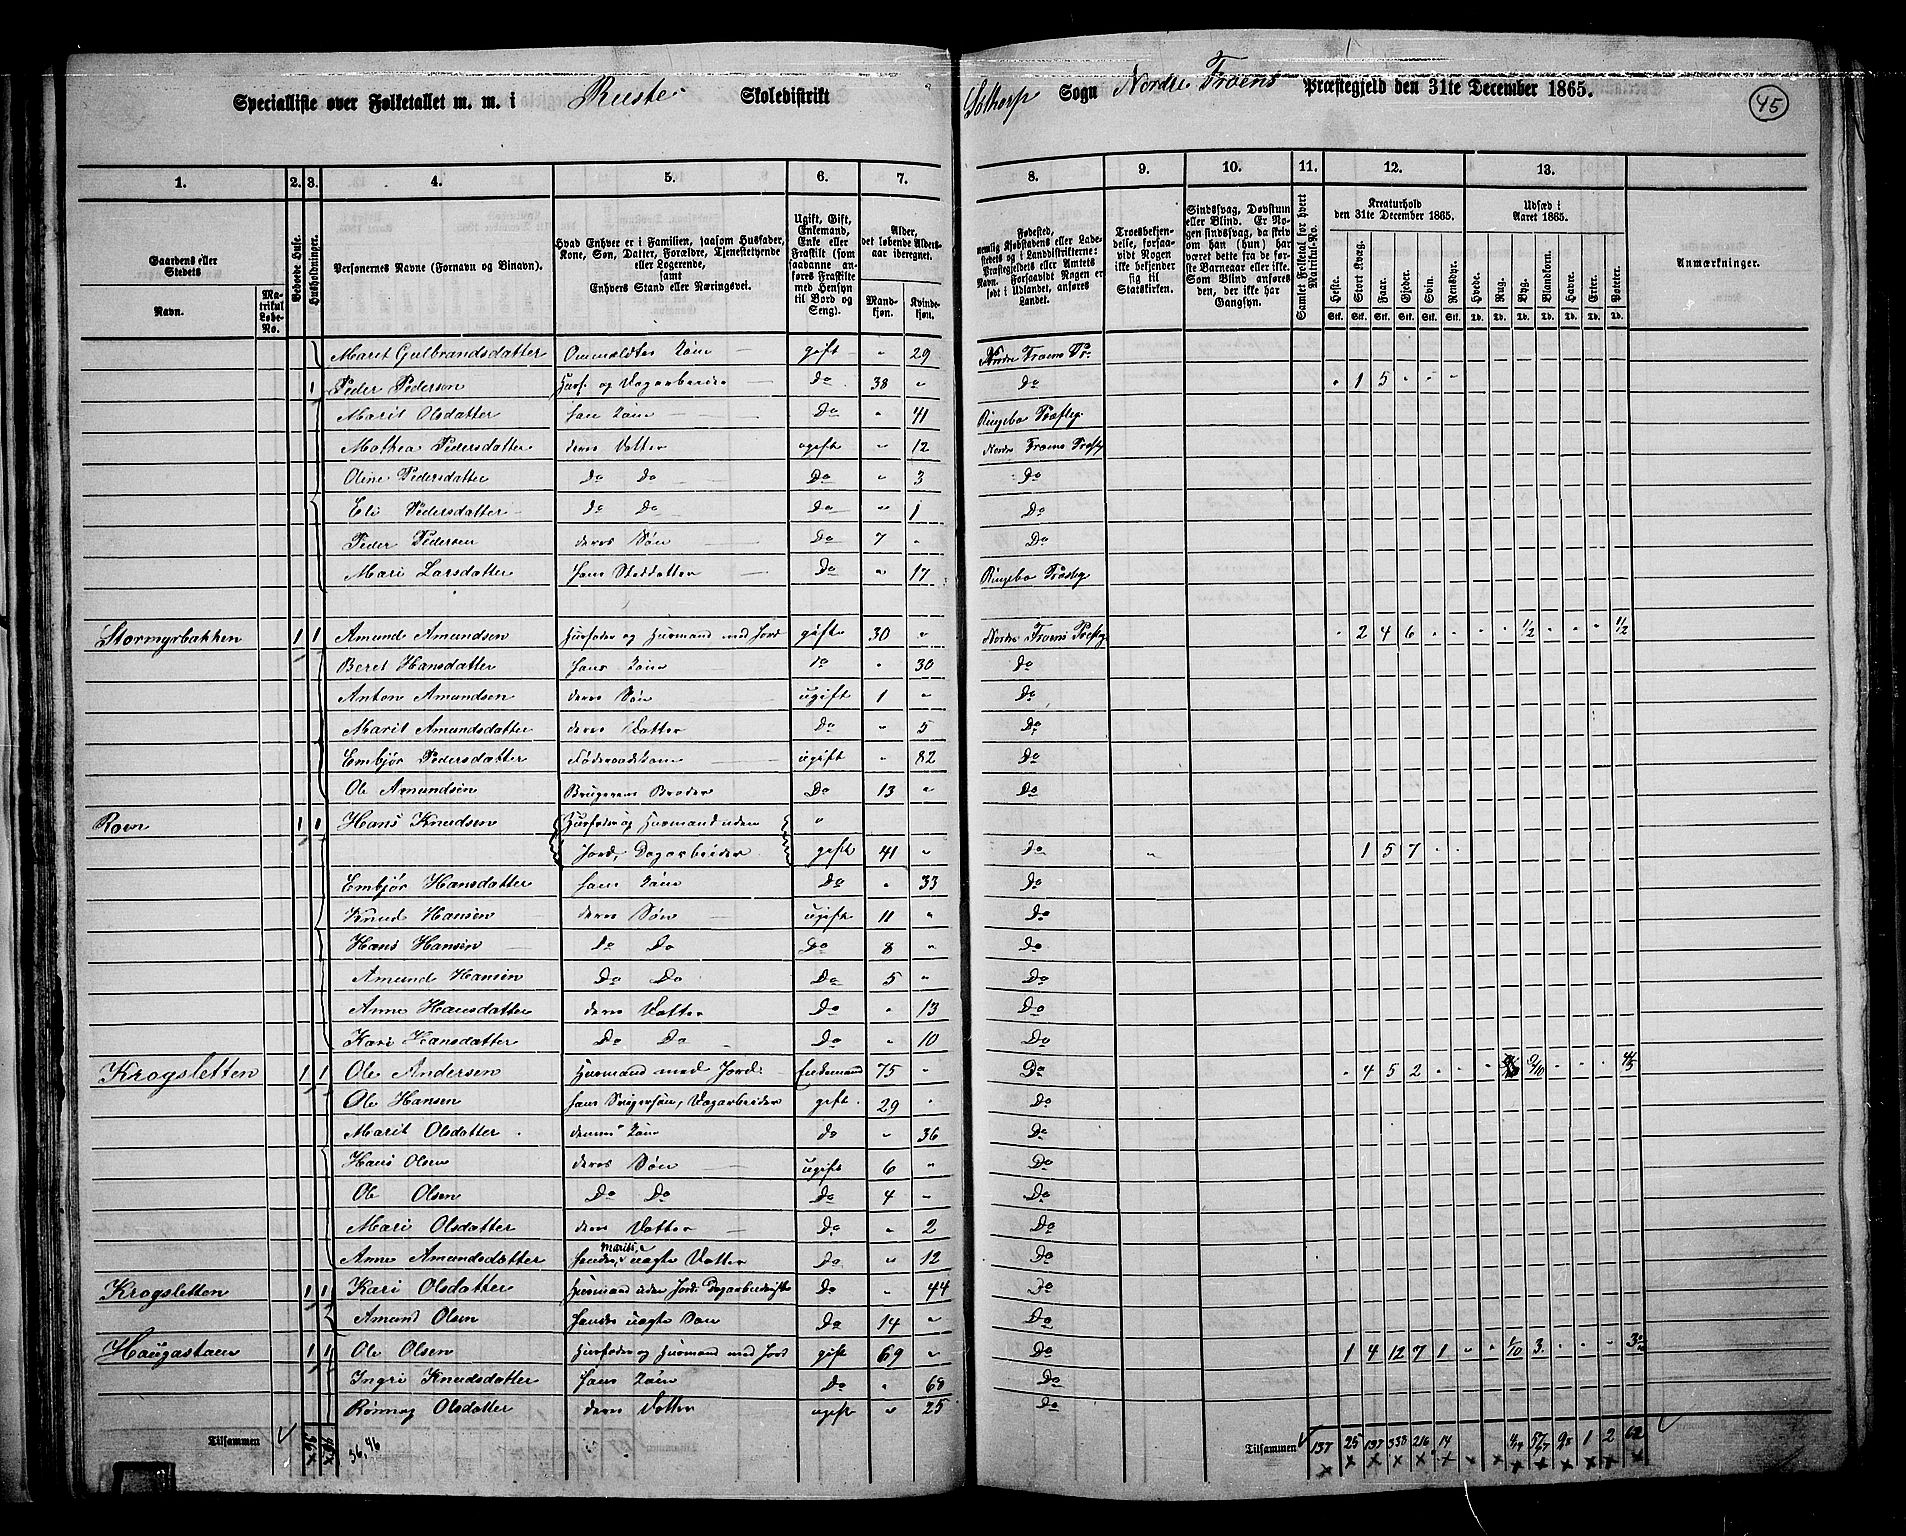 Specialliste over Folketallet m. m. i Ruste Skoledistrikt Sothorp Sogn Nordre Froens Præstegjeld den 31te December 1865. 45
1. 2. 3. 4. 5. 6. 7. 8. 9. 10. 11. 12. 13.
Gaardens eller Stedets
Navn.
Matrikul Løbe-No.
Beboede Huse.
Husholdninger.
Personernes Navne (Fornavn og Binavn).
Hvad Enhver er i Familien, saasom Husfader, Kone, Søn, Datter, Forældre, Tjenestetyende eller Logerende, samt Enhvers Stand eller Næringsvei.
Ugift, Gift, Enkemand, Enke eller Fraskilt (som saadanne anføres Fraskilte med Hensyn til Bord og Seng).
Alder, det løbende Aldersaar iberegnet.
Mandkjøn. Kvindekjøn.
Fødested, nemlig Kjøbstadens eller Ladestedets og i Landdistrikterne: Præstegjeldets eller Amtets Navn. Forsaavidt Nogen er født i Udlandet, anføres Landet.
Troesbekjendelse, forsaavidt Nogen ikke bekjender sig til Statskirken.
Sindssvag, Døvstum eller Blind. Er Nogen sindssvag, da skriv om han (hun) har været dette fra de første Barneaar eller ikke. Som Blind anføres den, der ikke har Gangsyn.
Samlet Folketal for hvert Matrikul-No.
Kreaturhold den 31te December 1865.
Heste. Stort Kvæg. Faar. Gjeder. Svin. Rensdyr.
Udsæd i Aaret 1865.
Hvede. Rug. Byg. Blandkorn. Havre. Erter. Poteter.
Anmærkninger.
Maret Gulbrandsdatter Ommeldtes Kone gift " 29 Nordre Froens Pr
1 Peder Pederson Husf. og Dagarbeider Do 38 " Do " 1 5 " " "
Marit Olsdatter hans Kone Do " 41 Ringebo Præsteg.
Mathea Pedersdatter deres Datter ugift " 12 Nordre Froens Præsteg
Oline Pedersdatter Do Do Do " 3 Do
Eli Pedersdatter Do Do Do " 1 Do
Peder Pedersen deres Søn Do 7 " Do
Mari Larsdatter hans Steddatter Do " 17 Ringebo Præsteg
Stormyrbakken 1 1 Amund Amundsen Husfader og Husmand med Jord gift 30 " Nordre Froens Præsteg " 2 4 6 " " " " 1/2 " " " 1/2
Beret Hansdatter hans Kone do " 30 Do
Anton Amundsen deres Søn ugift 1 " Do
Marit Amundsdatter deres Datter Do " 5 Do
Embjør Pedersdatter Føderaadskone ugift " 82 Do
Ole Amundsen Brugerens Broder Do 13 " Do
Roen 1 1 Hans Knudsen Husfader og Husmand uden "
Jord, Dagarbeider gift 41 " Do " 1 5 7 " "
Embjør Hansdatter hans Kone Do " 33 Do
Knud Hansen deres Søn ugift 11 " Do
Hans Hansen Do Do Do 8 " Do
Amund Hansen Do Do Do 5 " Do
Anne Hansdatter deres Datter Do " 13 Do
Kari Hansdatter Do Do Do " 10 Do
Krogsletten 1 1 Ole Andersen Husmand med Jord Enkemand 75 " Do " 4 5 2 " " " 9/10 " " " 4/5
Ole Hansen hans Svigersøn, Dagarbeider gift 29 " Do
Marit Olsdatter dennes Kone do " 36 Do
Hans Olsen deres Søn ugift 6 " Do
Ole Olsen Do Do Do 4 " Do
Mari Olsdatter deres Datter Do " 2 Do
Anne Amundsdatter Marits uægte Datter Do " 12 Do
Krogsletten 1 1 Kari Olsdatter Husmand uden Jord. Do " 44 Do
Amund Olsen hendes uægte Søn Do 14 " Do
Haugastuen 1 1 Ole Olsen Husfader og Husmand med Jord gift 69 " Do 1 4 12 7 1 " " 3 " " "
Ingri Knudsdatter hans Kone Do " 68
Rønnog Olsdatter deres Datter ugift " 25 Do
Tilsammen 36. 46 Tilsammen 137 25 137 333 216 14 1 2 62